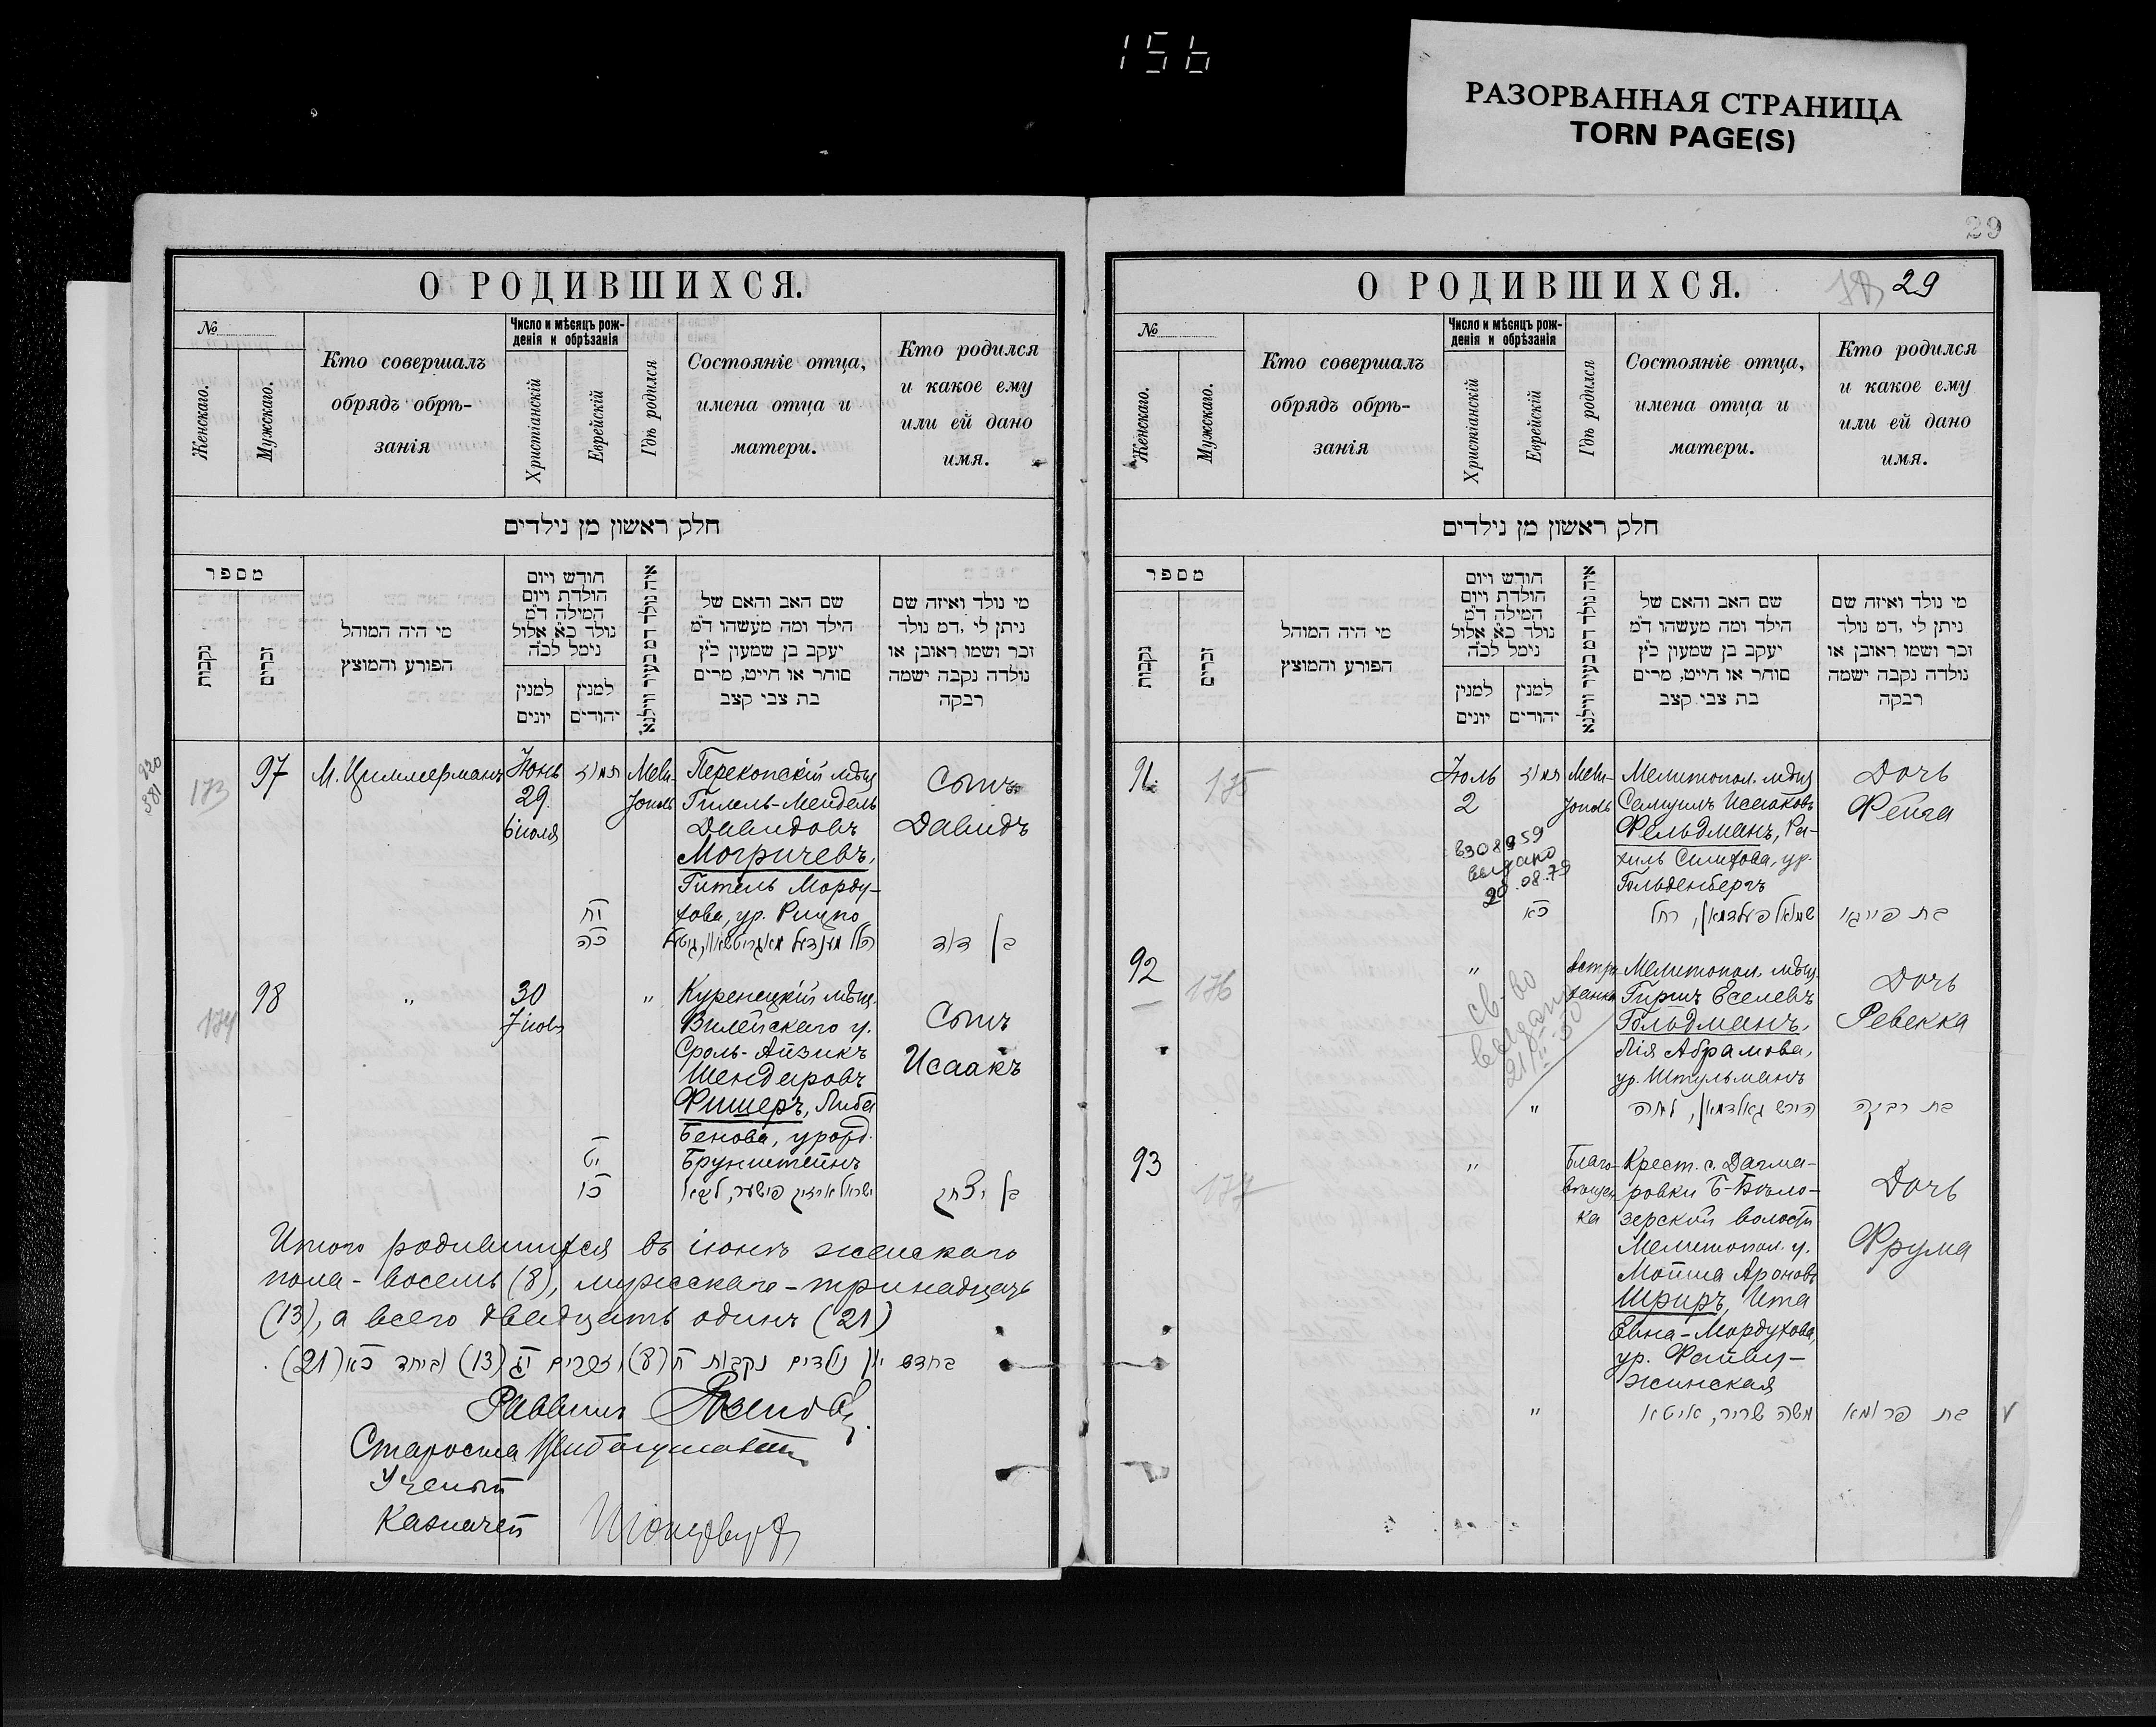 156
РАЗОРВАННАЯ СТРАНИЦА
TORN PAGE(S)
О РОДИВШИХСЯ.
№
Женскаго.
Мужскаго.
Кто совершалъ
обрядъ обрѣ-
занія
Число и мѣсяцъ рож-
денія и обрѣзанія
Христіанскій
Еврейскій
Гдѣ родился
Состояніе отца,
имена отца и
матери.
Кто родился
и какое ему
или ей дано
имя.
חלק ראשון מן נילדים
מספר
נקבות
זכרים
מי היה המוהל
הפורע והמוצץ
חודש ויום
הולדת ויום
המילה ד״מ
נולד כ״א אלול
נימל לכ״ה
למנין
יונים
למנין
יהודים
איה נולד דמ בעיר ווילנא
שם האב והאם של
הילד ומה מעשהו ד״מ
יעקב בן שמעון כ״ץ
סוחר או חייט, מרים
בת צבי קצב
מי נולד ואיזה שם
ניתן לי ,דמ נולד
זכר ושמו ראובן או
נולדה נקבה ישמה
רבקה
173
97
М. Циммерманъ
Іюнь
29.
6 іюля
תמוז
Мели-
тополь
Перекопскій мѣщ.
Гилель-Мендель
Давидовъ
Могричевъ,
Гитель Морду-
хова, ур. Рицпо
Сынъ
Давидъ
כה
בן דוד
174
98
"
30
7 іюля
"
Куренецкій мѣщ.
Вилейскаго у.
Сроль-Айзикъ
Шендеровъ
Фишеръ, Либа
Бенова, урожд.
Брунштейнъ
Сынъ
Исаакъ
יט
כו
ישראל אייזיק פישער, ליבא
בן יצחק
Итого родившихся въ іюнѣ женскаго
пола - восемь (8), мужскаго - тринадцать
(13), а всего двадцать одинъ (21)
בחדש יון נולדים נקבות ח (8) וזכרים יג (13) וביחד כא (21)
Раввинъ
Староста
Ученый
Казначей
29
О РОДИВШИХСЯ.
29
№
Женскаго.
Мужскаго.
Кто совершалъ
обрядъ обрѣ-
занія
Число и мѣсяцъ рож-
денія и обрѣзанія
Христіанскій
Еврейскій
Гдѣ родился
Состояніе отца,
имена отца и
матери.
Кто родился
и какое ему
или ей дано
имя.
חלק ראשון מן נילדים
מספר
נקבות
זכרים
מי היה המוהל
הפורע והמוצץ
חודש ויום
הולדת ויום
המילה ד״מ
נולד כ״א אלול
נימל לכ״ה
למנין
יונים
למנין
יהודים
איה נולד דמ בעיר ווילנא
שם האב והאם של
הילד ומה מעשהו ד״מ
יעקב בן שמעון כ״ץ
סוחר או חייט, מרים
בת צבי קצב
מי נולד ואיזה שם
ניתן לי ,דמ נולד
זכר ושמו ראובן או
נולדה נקבה ישמה
רבקה
91.
175
Іюль
2
תמוז
Мели-
тополь
Мелитопол. мѣщ.
Самуилъ Исааковъ
Фельдманъ, Ра-
хиль Симхова, ур.
Гольденбергъ
Дочь
Фейга
выдано
20.08.79
כא
שמואל פעלדמאן, רחל
בת פייגא
92
176
"
Мелитопол. мѣщ.
Гиршъ Еселевъ
Гольдманъ,
Лія Абрамова,
ур. Штульманъ
Дочь
Ревекка
св-во
выдано
"
הירש גאלדמאן, לאה
בת רבקה
93
177
"
Благо-
вѣщен
ка
Крест. с. Дагма-
ровки Б-Бѣло-
зерской волости
Мелитопол. у.
Мойша Ароновъ
Шриръ, Ита
Евна-Мордухова,
ур. Файву-
жинская
Дочь
Фрума
"
משה שריר, איטא
בת פרומא